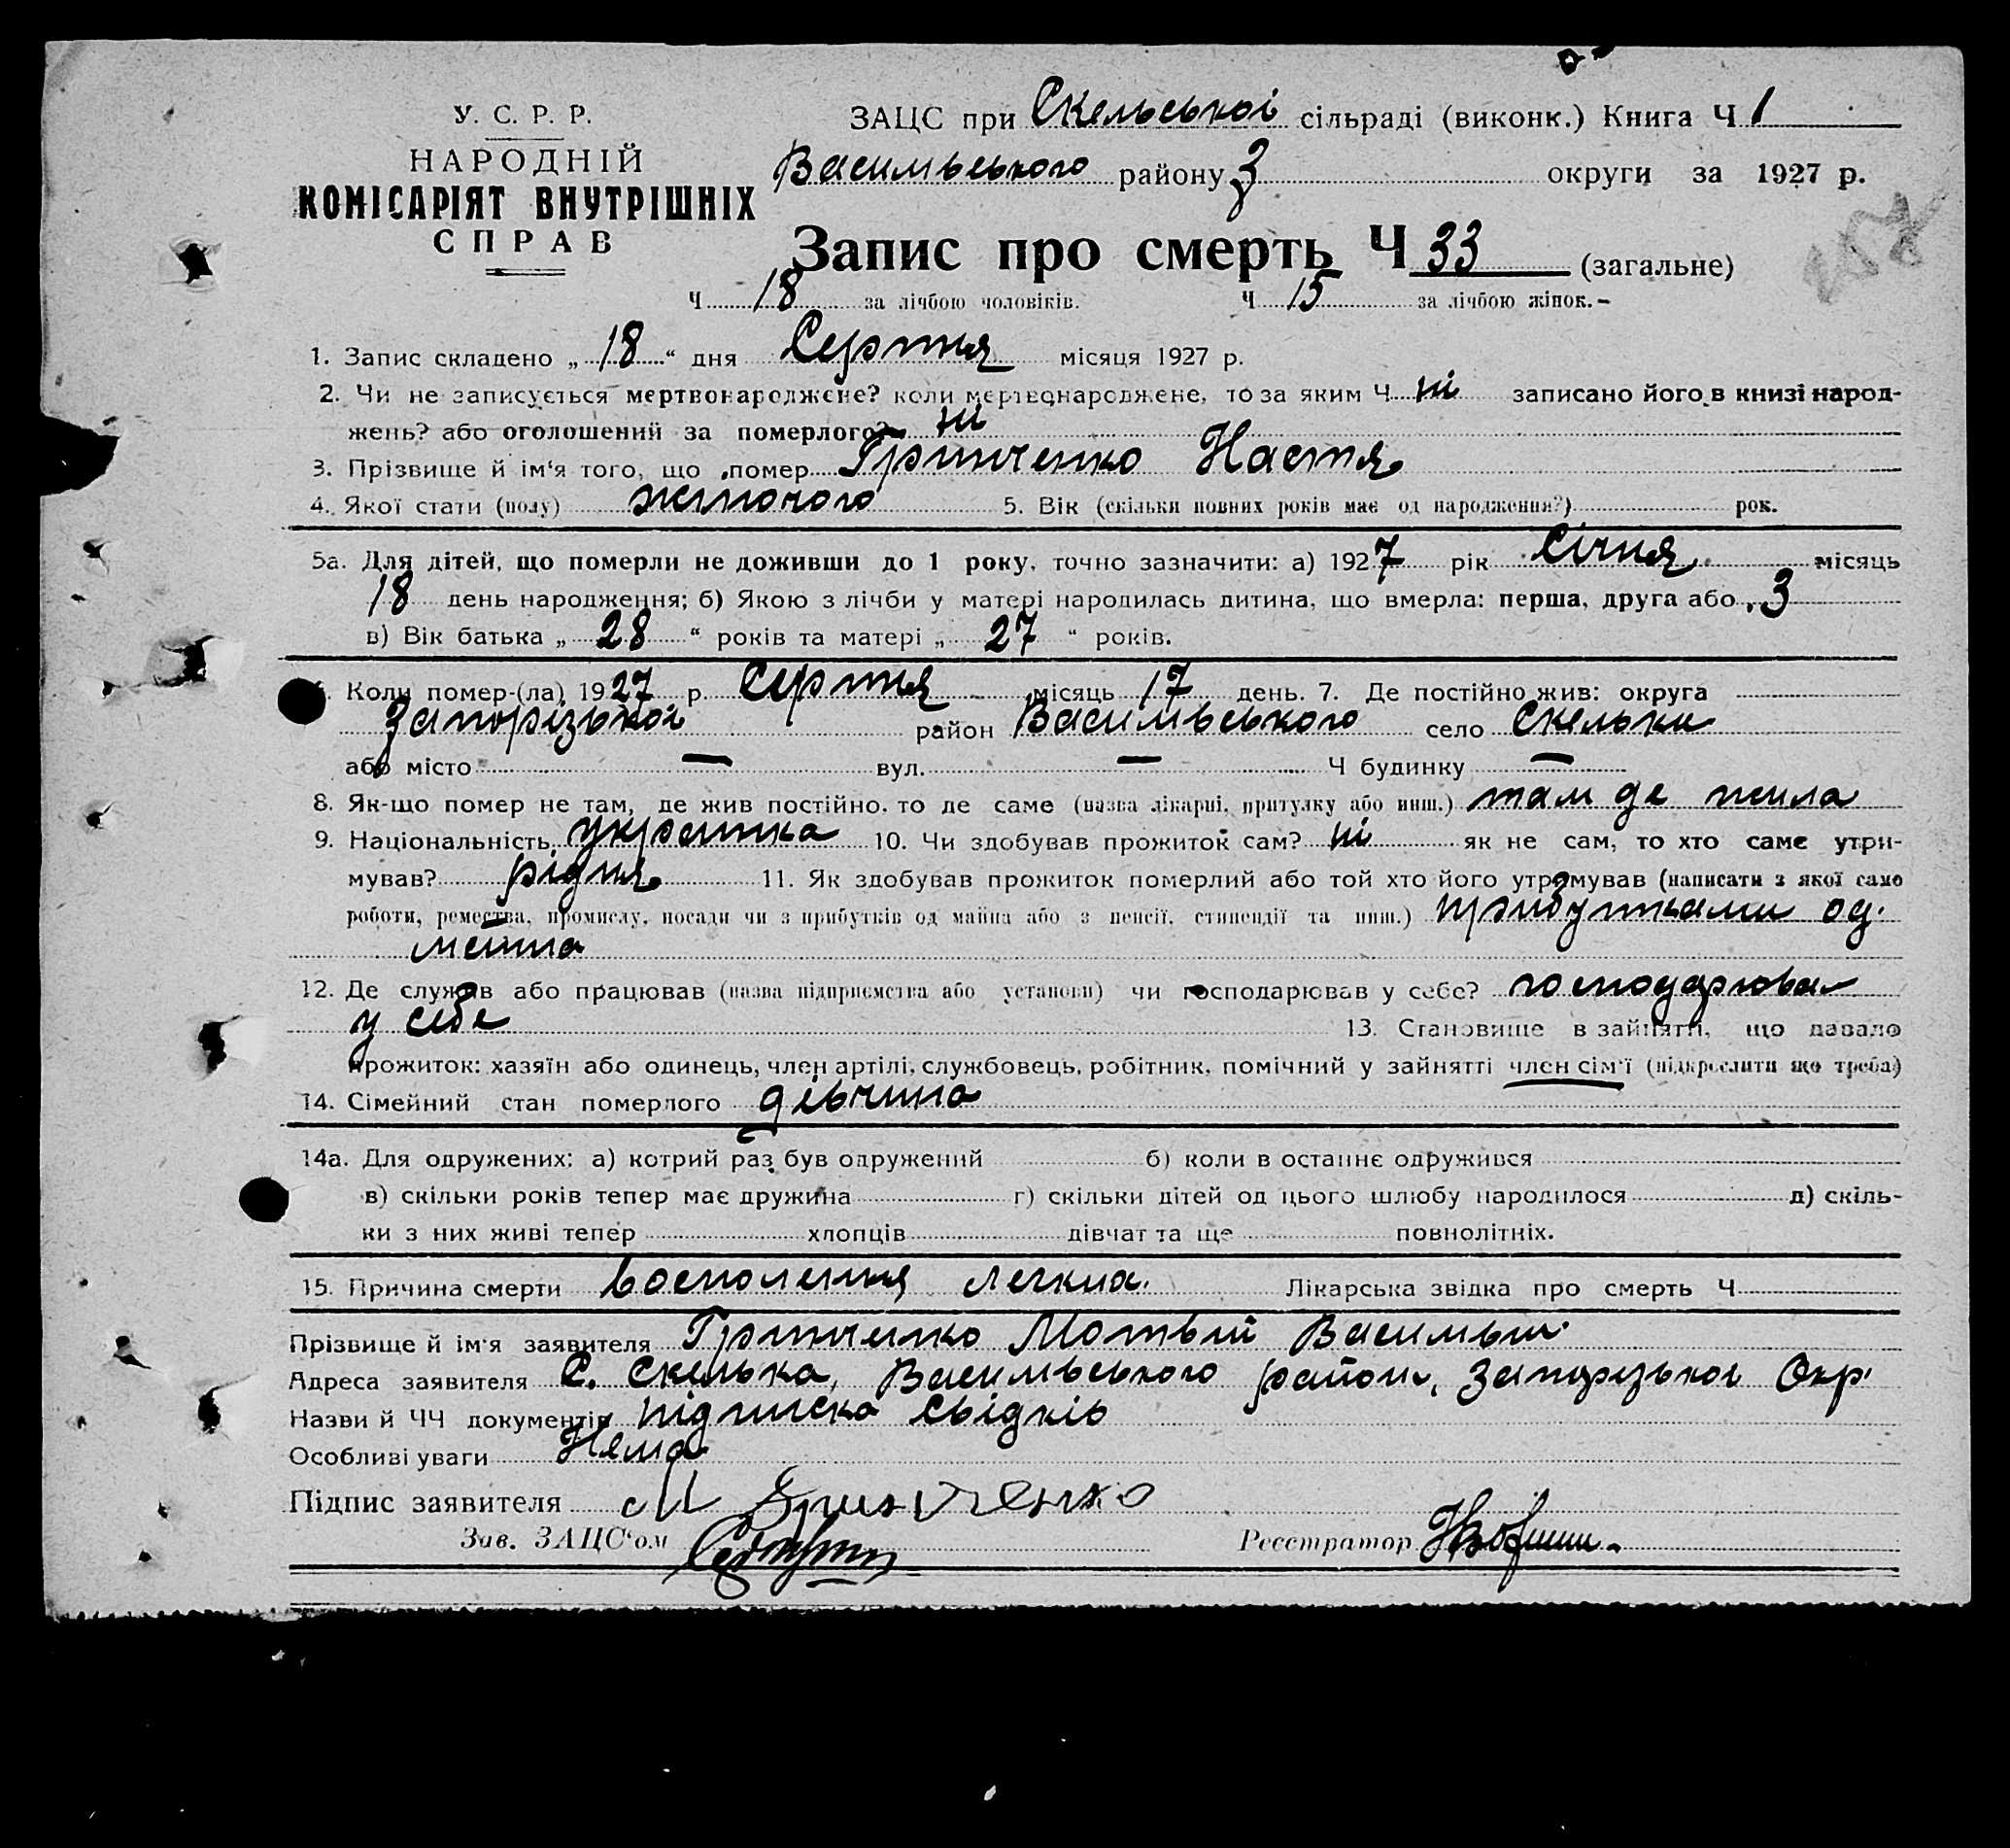 У. С. Р. Р.
НАРОДНІЙ
КОМІСАРІЯТ ВНУТРІШНІХ
СПРАВ
ЗАЦС при Скельської сільраді (виконк.) Книга Ч 1
Васильського району З округи за 1927 р.
Запис про смерть Ч 33 (загальне)
Ч 18 за лічбою чоловіків. Ч 15 за лічбою жінок.-
1. Запис складено „ 18 “ дня Серпня місяця 1927 р.
2. Чи не записується мертвонароджене? коли мертвонароджене, то за яким Ч ні записано його в книзі народ-
жень? або оголошений за померлого? ні
3. Прізвище й ім‘я того, що помер Гринченко Настя
4. Якої стати (полу) жіночого 5. Вік (скільки повних років має од народження?) рок.
5а. Для дітей, що померли не доживши до 1 року, точно зазначити: а) 1927 рік Січня місяць
18 день народження; б) Якою з лічби у матері народилась дитина, що вмерла: перша, друга або 3
в) Вік батька „ 28 “ років та матері „ 27 “ років.
Коли помер-(ла) 1927 р. Серпня місяць 17 день. 7. Де постійно жив: округа
Запорізької район Васильського село Скельки
або місто — вул. — Ч будинку —
8. Як-що помер не там, де жив постійно, то де саме (назва лікарні, притулку або инш.) там де жила
9. Національність українка 10. Чи здобував прожиток сам? ні як не сам, то хто саме утри-
мував? рідня 11. Як здобував прожиток померлий або той хто його утримував (написати з якої само
роботи, ремества, промислу, посади чи з прибутків од майна або з пенсії, стипендії та инш.) прибутками од
майна
12. Де служив або працював (назва підприємства або установи) чи господарював у себе? господарював
у себе 13. Становище в зайнятті, що давало
прожиток: хазяїн або одинець, член артілі, службовець, робітник, помічний у зайнятті член сім‘ї (підкреслити що треба)
14. Сімейний стан померлого дівчина
14а. Для одружених: а) котрий раз був одружений б) коли в останнє одружився
в) скільки років тепер має дружина г) скільки дітей од цього шлюбу народилося д) скіль-
ки з них живі тепер хлопців дівчат та ще повнолітніх.
15. Причина смерти восполення легких. Лікарська звідка про смерть Ч
Прізвище й ім‘я заявителя Гринченко Мотвій
Адреса заявителя С. Скелька, Васильського район, Запорізької Окр.
Назви й ЧЧ документів підписка свідків
Особливі уваги Нема
Підпис заявителя М Гринченко
Зав. ЗАЦС‘ом
Реєстратор